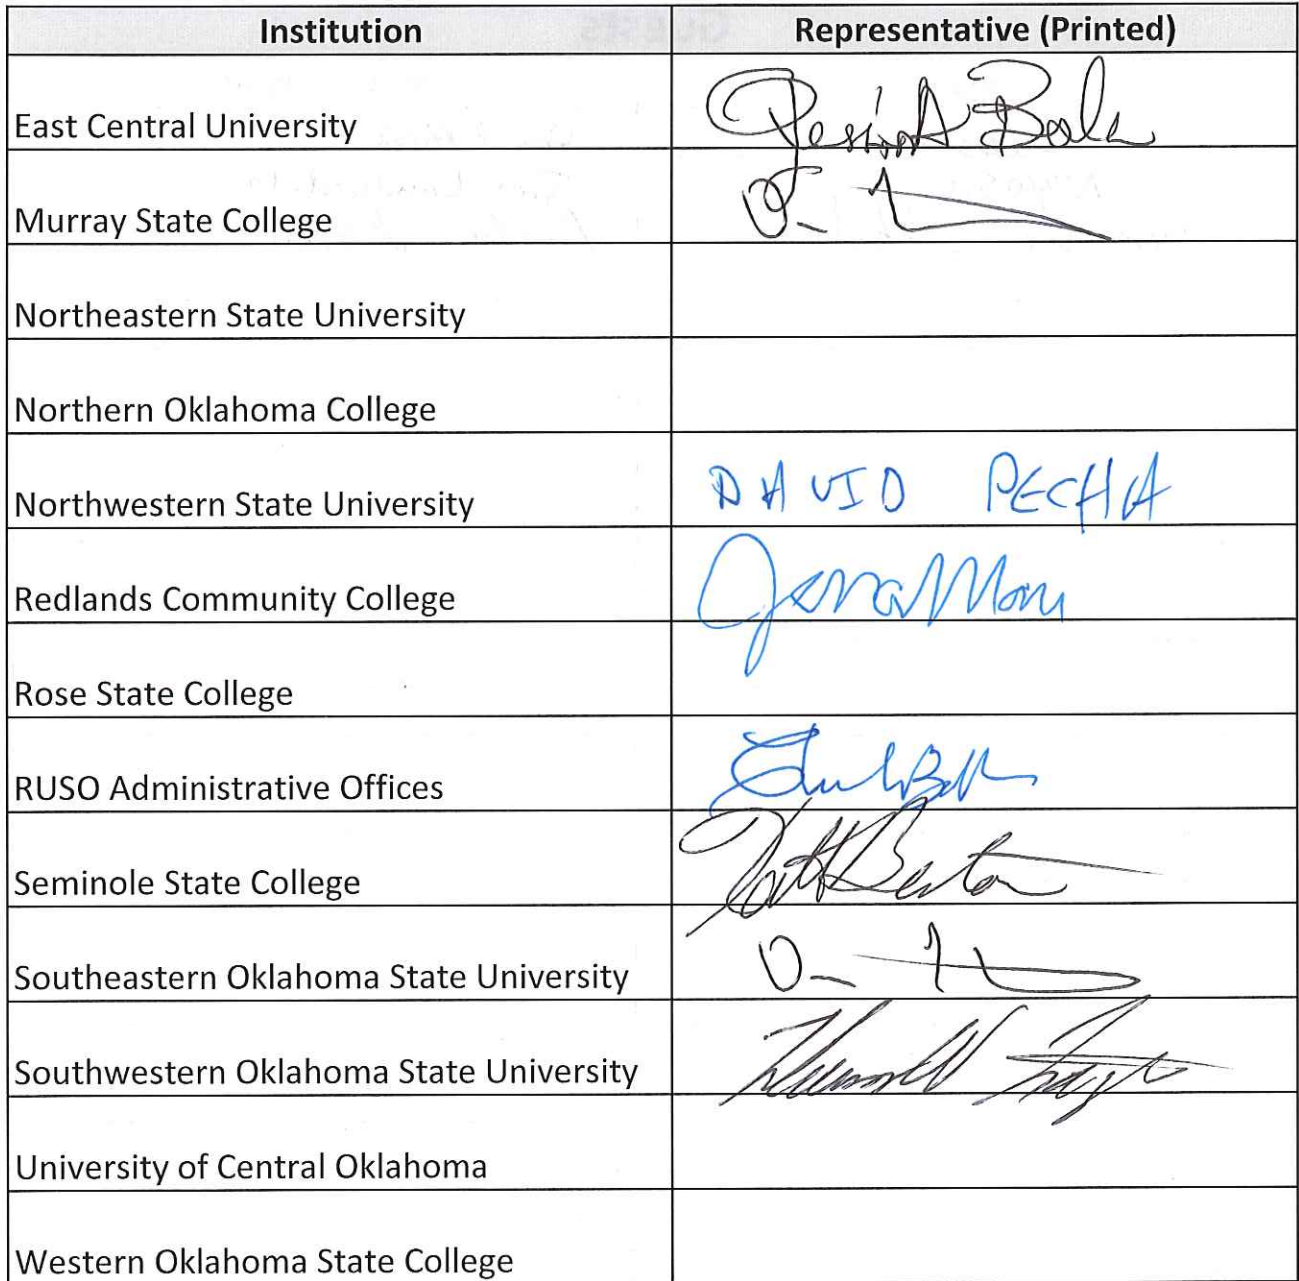 Institution Representative (Printed)
East Central University
Murray State College
Northeastern State University
Northern Oklahoma College
Northwestern State University DAVID PECHA
Redlands Community College
Rose State College
RUSO Administrative Offices
Seminole State College
Southeastern Oklahoma State University
Southwestern Oklahoma State University
University of Central Oklahoma
Western Oklahoma State College